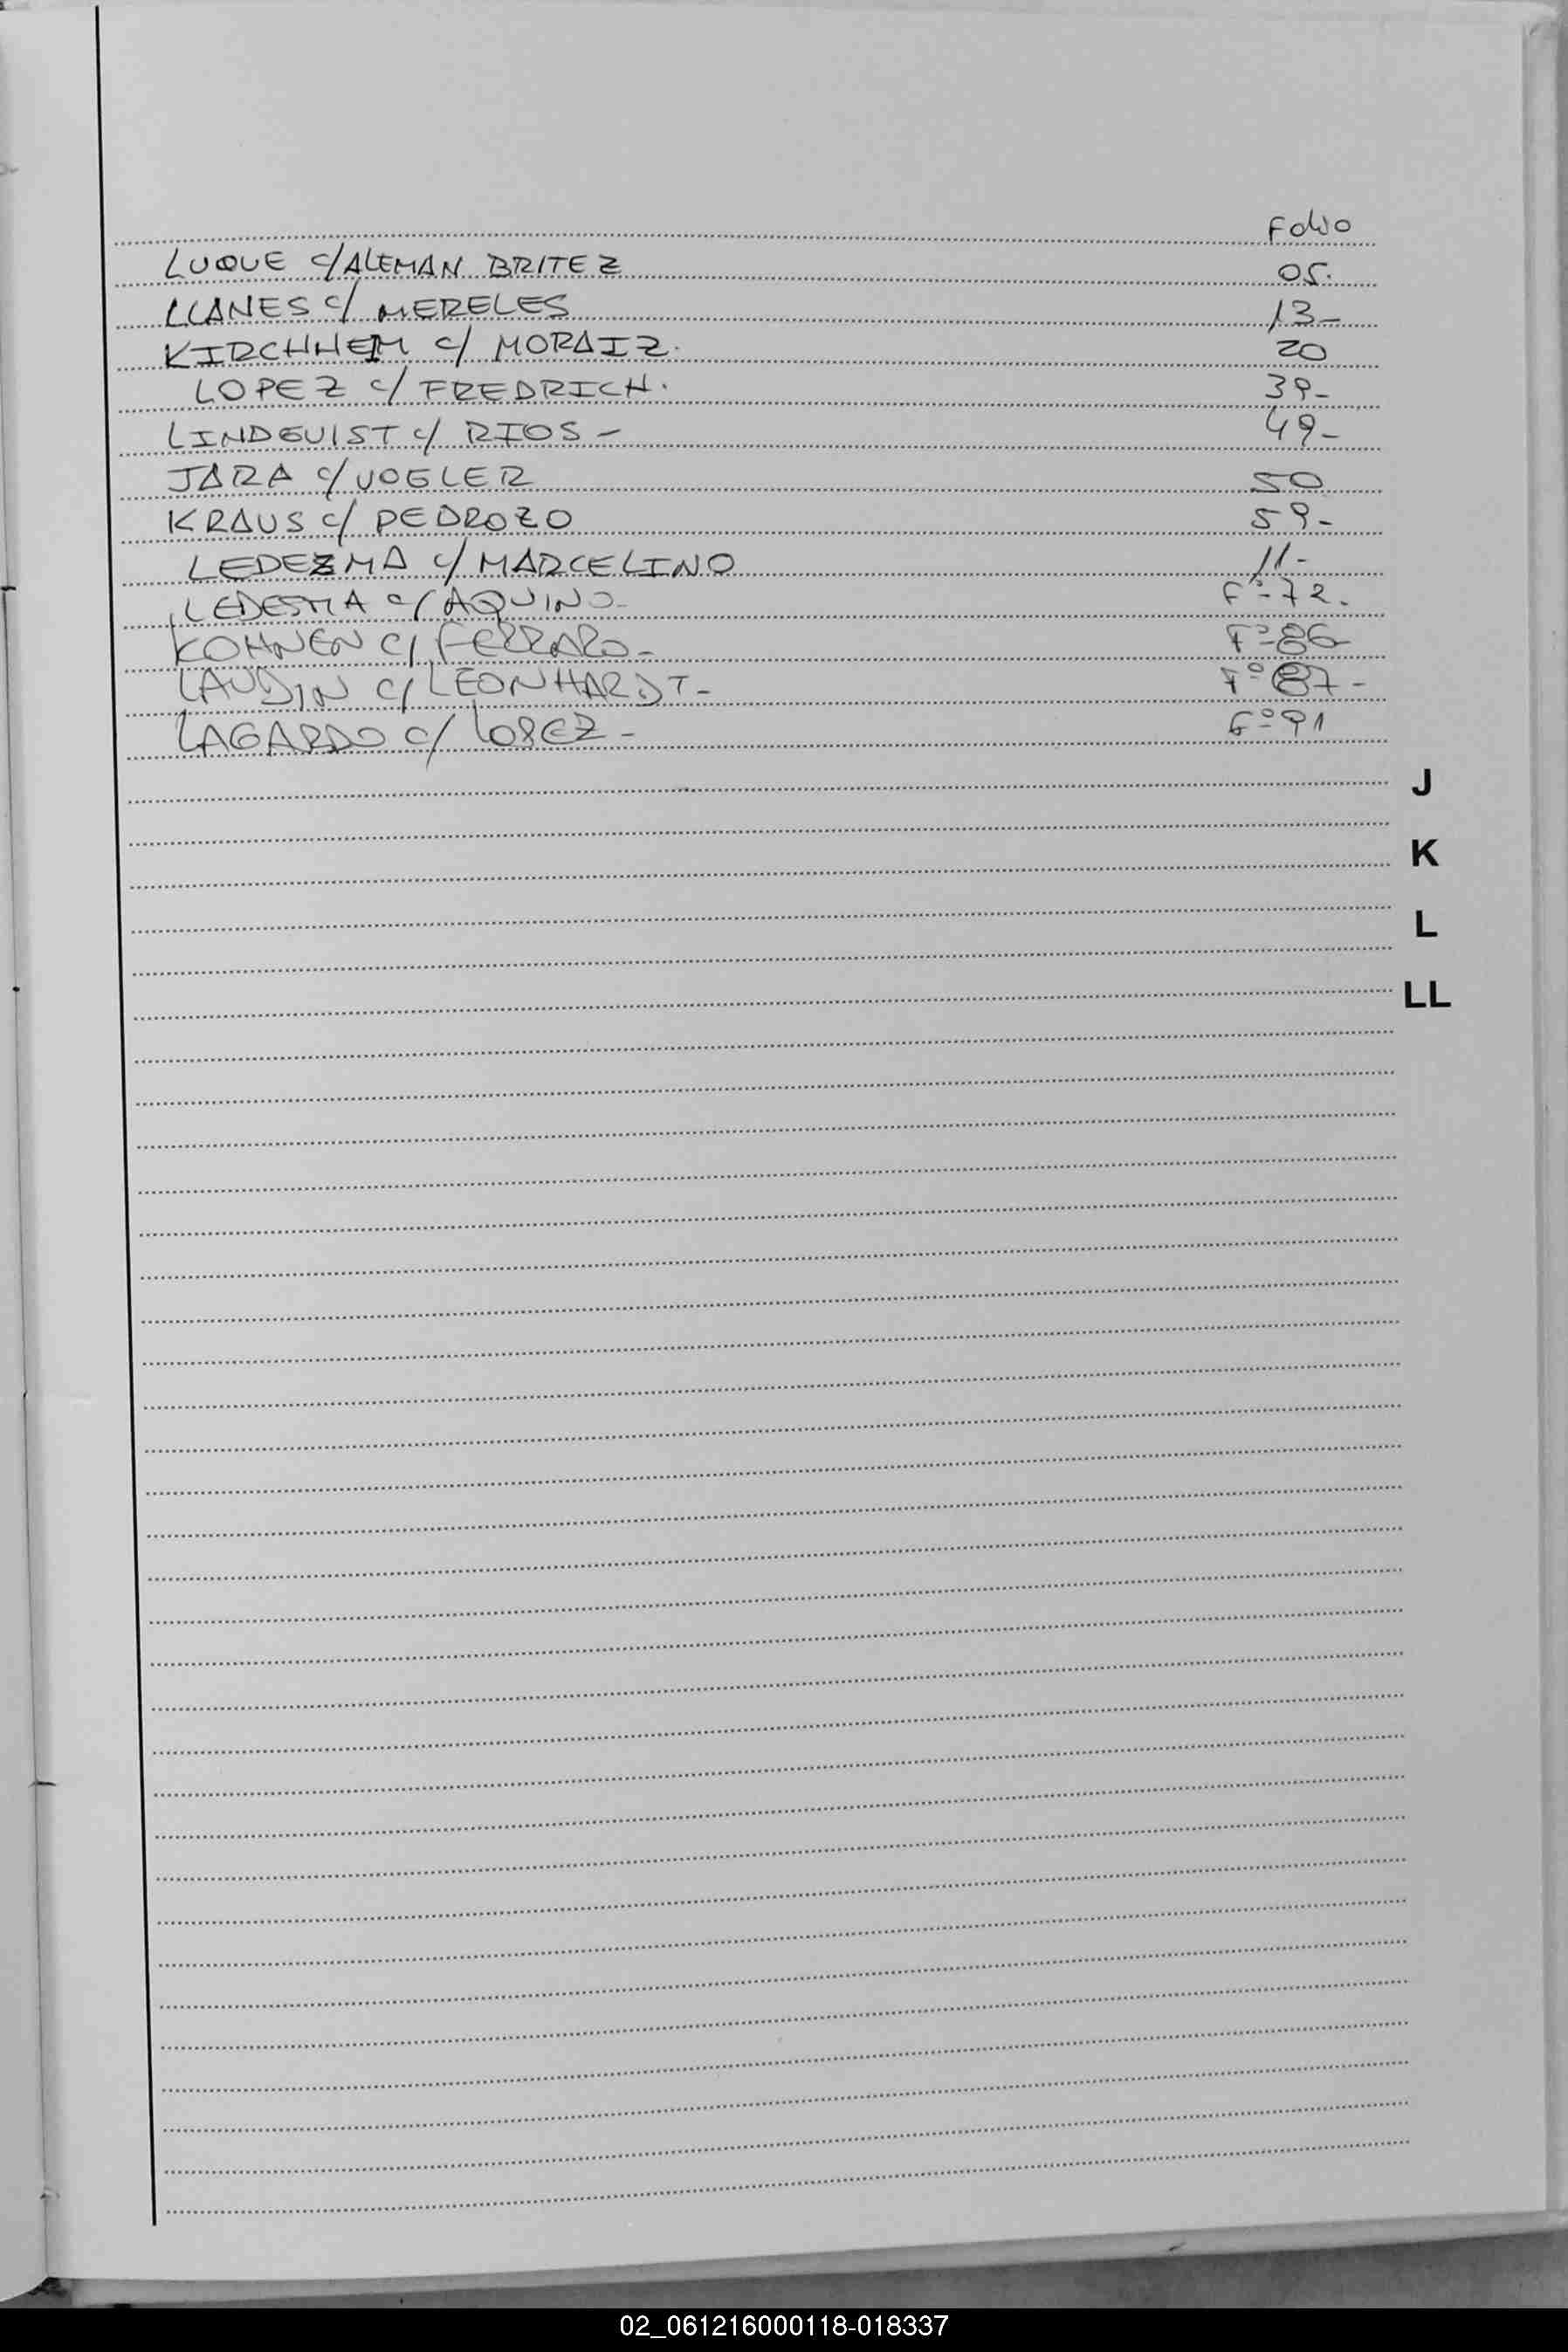 Folio
LUQUE c/ ALEMAN BRITEZ 05.
LLANES c/ MERELES 13-
KIRCHHEIM c/ MORAIZ. 20
LOPEZ c/ FREDRICH. 39-
LINDGUIST c/ RIOS - 49-
JARA c/ VOGLER 50
KRAUS c/ PEDROZO 59-
LEDEZMA c/ MARCELINO 11-
LEDESMA c/ AQUINO- Fº-72.
KOHNEN c/ FERRARO- Fº-86-
LAUDIN c/ LEONHARDT- Fº 87-
LAGARDO c/ LOPEZ- Fº-91
J
K
L
LL
02_061216000118-018337